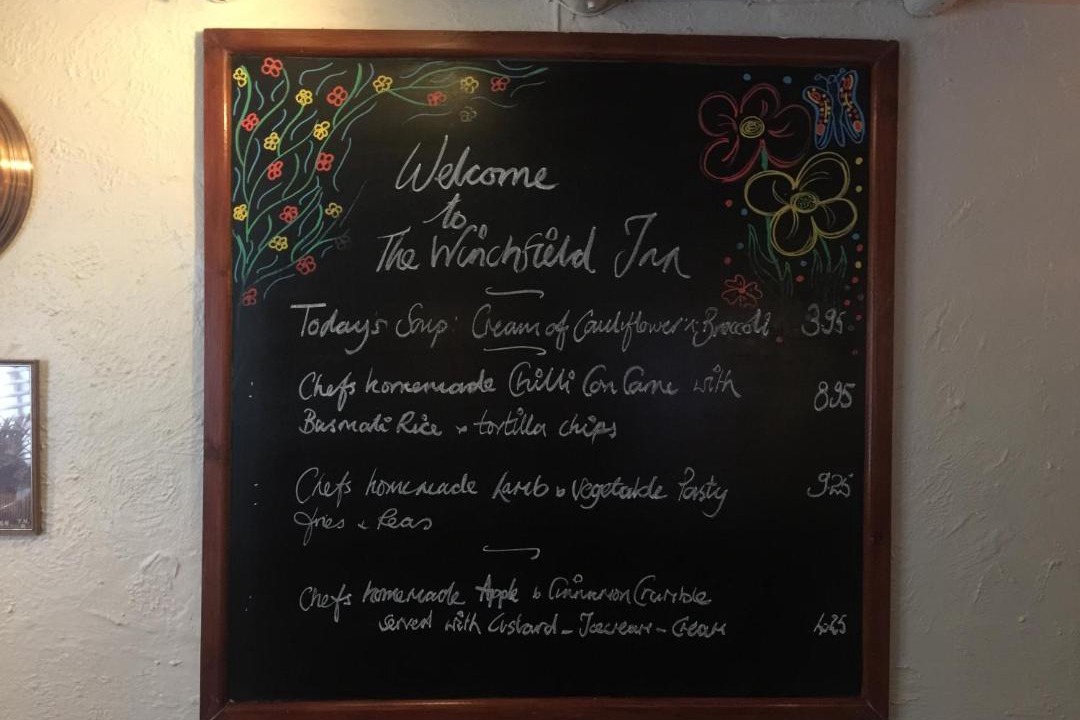 Welcome
to
The Winchfield Inn
Today's Soup: Cream of Cauliflower & Broccoli 3.95
Chefs homemade Chilli Con Carne with 8.95
Basmati Rice & tortilla chips
Chefs homemade Lamb & Vegetable Pasty 9.25
fries & Peas
Chefs homemade Apple & Cinnamon Crumble
served with Custard - Icecream - Cream 4.25